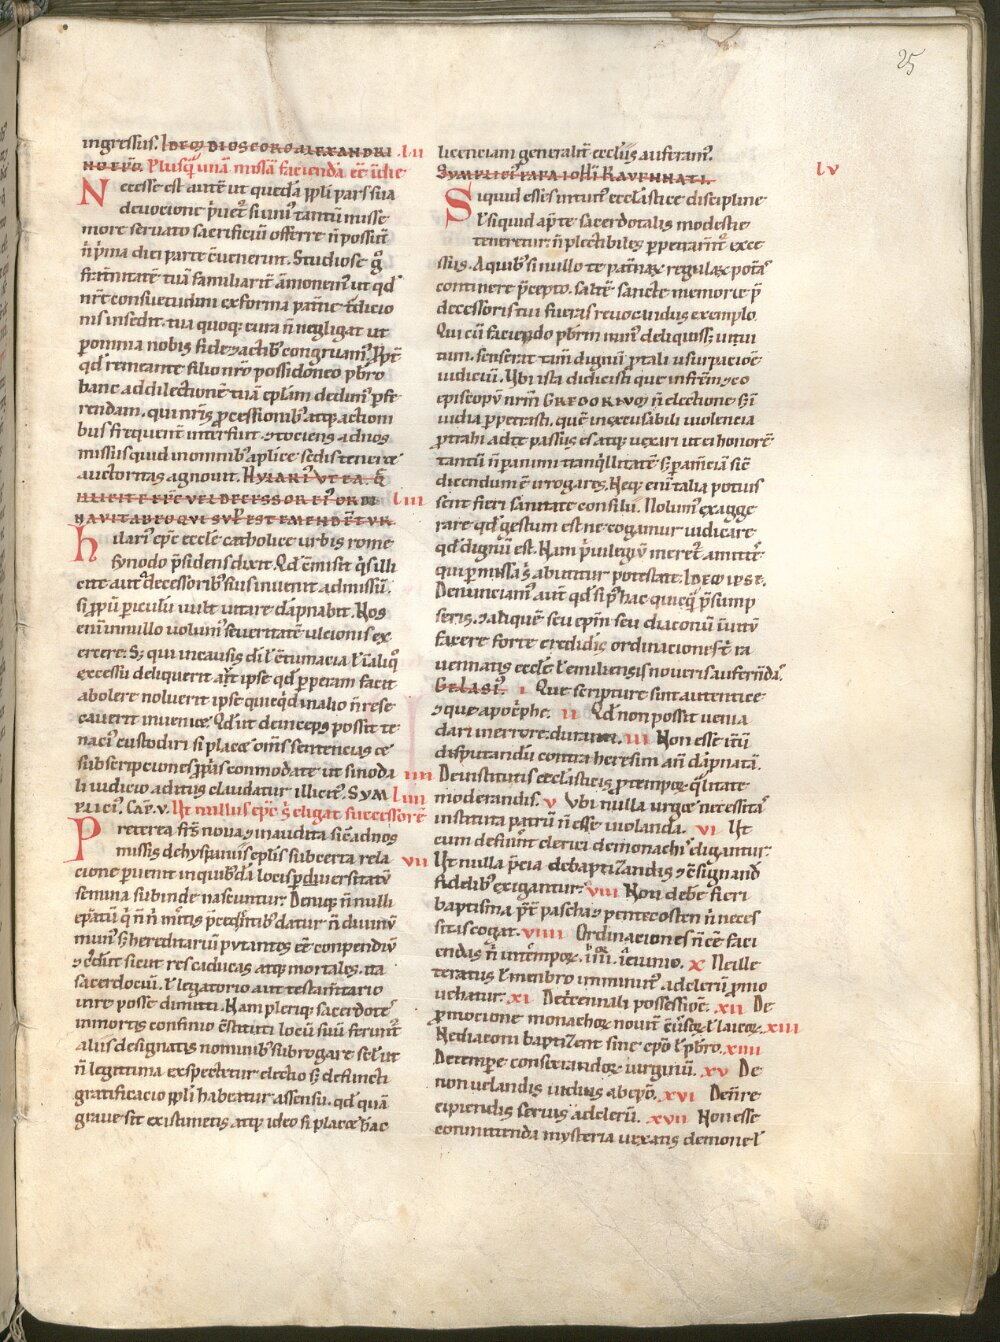 25
ingressus. Idem dioscoro alexandri
no ep̄o. Plusq̄ unā missā facienda ēē ī die
lii
Necesse est autē ut quedā ppli pars sua
deuocione p̄uet̃ si uni᷒ tantū misse
more seruato sacrificiū offerre n̄ possint
n̄ p̄ma diei parte c̄uenerint. Studiose g̊
fr̄nitatē tuā familiarit̃ ām̄onem᷒ ut qd̄
nr̄e consuetudini ex forma pat̄ne t̄dicio
nis insedit. tua quoq; cura n̄ negligat ut
ꝑ omnia nobis fide ⁊ actib᷒ congruam᷒. Ppt̃
qd̄ remeante filio nr̄o possidoneo pb̄ro
hanc ad dilectionē tuā ep̄lam dedim᷒ ꝑfe
rendam. qui nr̄is ꝓcessionib᷒ atq; action
bus frequent̃ interfuit ⁊ tociens ad nos
missus quid in omnib᷒ ap̄lice sedis tenere
auctoritas agnouit. Hylari᷒ ut ea. q̄
illicite
liii
hilari᷒ ep̄c eccl̄e catholice urbis rome
synodo p̄sidens dixit. Qd̄ c̄misit q̄s illi
cite aut a decessorib᷒ suis inuenit admissū.
si ppū periculū uult uitare dāpnabit. Nos
enī in nullo uolum᷒ seueritatē ulcionis ex
ercere. S; qui in causis dī l̄ c̄tumacia l̄ ī aliq̊
excessu deliquerit aut̃ ipse qd̄ ꝑperam facit
abolere noluerit ipse quicq̄d in alio n̄ rese
cauerit inueniet. Qd̄ ut deinceps possit te
naci᷒ custodiri si placet om̄s sentencias &
subscripciones ppas conmodate ut sinoda
li iudicio aditus claudatur illicit᷒. Sym
plici᷒. Cap. v. Ut nullus ep̄c s̄ eligat successorē
liiii
Preterea fr̄s noua ⁊ inaudita sic̄ ad nos
missis de hyspaniis ep̄lis sub certa rela
cione puenit in quib᷒dā locis ꝑ diuersitatū
semina subinde nascuntur. Deniq; n̄ nulli
ep̄atū q̄ n̄ n̄ m̄itis p̄cedn̄tib᷒ datur n̄ diuinū
mun᷒ s; hereditariū putantes ēē conpendiū
⁊ c̄dūt sicut res caducas atq; mortales. ita
sacerdociū. l̄ legatorio aut testam̄tario
iure posse dimitti. Nam pleriq; sacerdotes
in mortis confinio c̄stituti locū suū ferunt᷒
aliis designatis nominib᷒ subrogare scł ut
n̄ legittima exspectetur electio s; defuncti
gratificacio ppli habeatur assensu. qd̄ quā
graue sit existimetis. atq; ideo si placet hac
licenciam generalit̃ eccl̄iis auferam᷒.
Symplici᷒ papa iohī Rauennati.
lv
Siquid esses intuit᷒ eccl̄astice discipline
l̄ siquid ap̄ te sacerdotalis modestie
teneretur. n̄ plectibiles ꝑpetrarent᷒ exce
ssus. A quib᷒ si nullo te pat̄naꝝ regulaꝝ pot̄as
continere p̄cepto. saltē sancte memorie p̄
decessoris tui fueras reuocandus exemplo.
Qui cū faciendo pb̄rm inni᷒ deliquoss;
tum. senserat tam̄ dignū ꝓ tali usurpacioē
iudiciū. Ubi ista didicisti que in fr̄em ⁊ co
episcopū nr̄m Gregoriū n̄ electione s; ī
uidia ꝑpetrasti. quē inexcusabili uiolencia
ꝓtrahi ad te passus es atq; uexari ut ei honorē
tantū n̄ ꝑ animi tranq̄llitatē s; ꝑ am̄ciā sic̄
dicendum ē irrogares. Neq; enī talia potuis
sent fieri sanitate consilii. Nolum᷒ exagge
rare qd̄ gestum est ne cogamur iudicare
qd̄ dignū est. Nam p̄uilegiū meret᷒ amitte̅
qui ꝑmissa s̄ abutitur potestate. Idem ipse.
Denunciam᷒ aut̄ qd̄ si p᷒ hac quicq̄ p̄sump
seris. ⁊ aliquē seu ep̄m seu diaconū īuitū
facere forte credidis̄ ordinaciones t̄ ra
uennatis eccl̄e l̄ emiliensis noueris auferēdā.
Gelasi᷒. i Que scripture sint autentice
⁊ que apoc̄phe. ii Qd̄ non possit uenia
dari in errore durantī. iii Non esse c̄tū
disputandū contra heresim an̄ dāpnatā.
iiii De institutis eccl̄asticis ꝓ temporꝝ q̄litate
moderandis. v Ubi nulla urget necessitas
instituta patrū n̄ esse uiolanda. vi Ut
cum defuer̄int clerici de monachi᷒ eligantur.
vii Ut nulla p̄cia de baptizandis ⁊ c̄signand᷒
fidelib᷒ exigantur. viii Non debē fieri
baptisma p̄t̄ pascha ⁊ pentecosten n̄ neces
sitas cogat. viiii Ordinaciones n̄ c̄ē faci
endas n̄ iiii᷒ temporꝝ. ieiunio. x Ne ille
teratus l̄ menbro imminut᷒ ad clerū ꝓmo
ueatur. xi De t̄cennali possessioē. xii De
ꝓmocione monachoꝝ nouit᷒ c̄uersoꝝ l̄ laicoꝝ. xiii
Ne diaconi baptizent sine ep̄o l̄ pb̄ro. xiiii
De tempore consecrandoꝝ uirginū. xv De
non uelandis uiduis ab ep̄o. xvi De n̄ re
cipiendis seruis ad clerū. xvii Non esse
committenda mysteria uexatis demone l̄